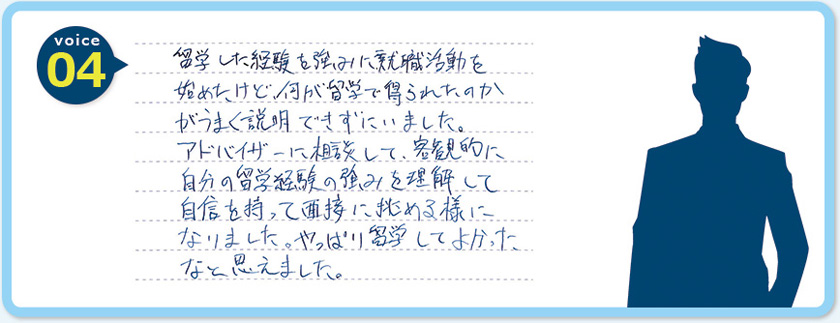 voice
04
留学した経験を強みに就職活動を
始めたけど、何が留学で得られたのか
がうまく説明できずにいました。
アドバイザーに相談して、客観的に
自分の留学経験の強みを理解して
自信を持って面接に挑める様に
なりました。やっぱり留学してよかった
なと思えました。